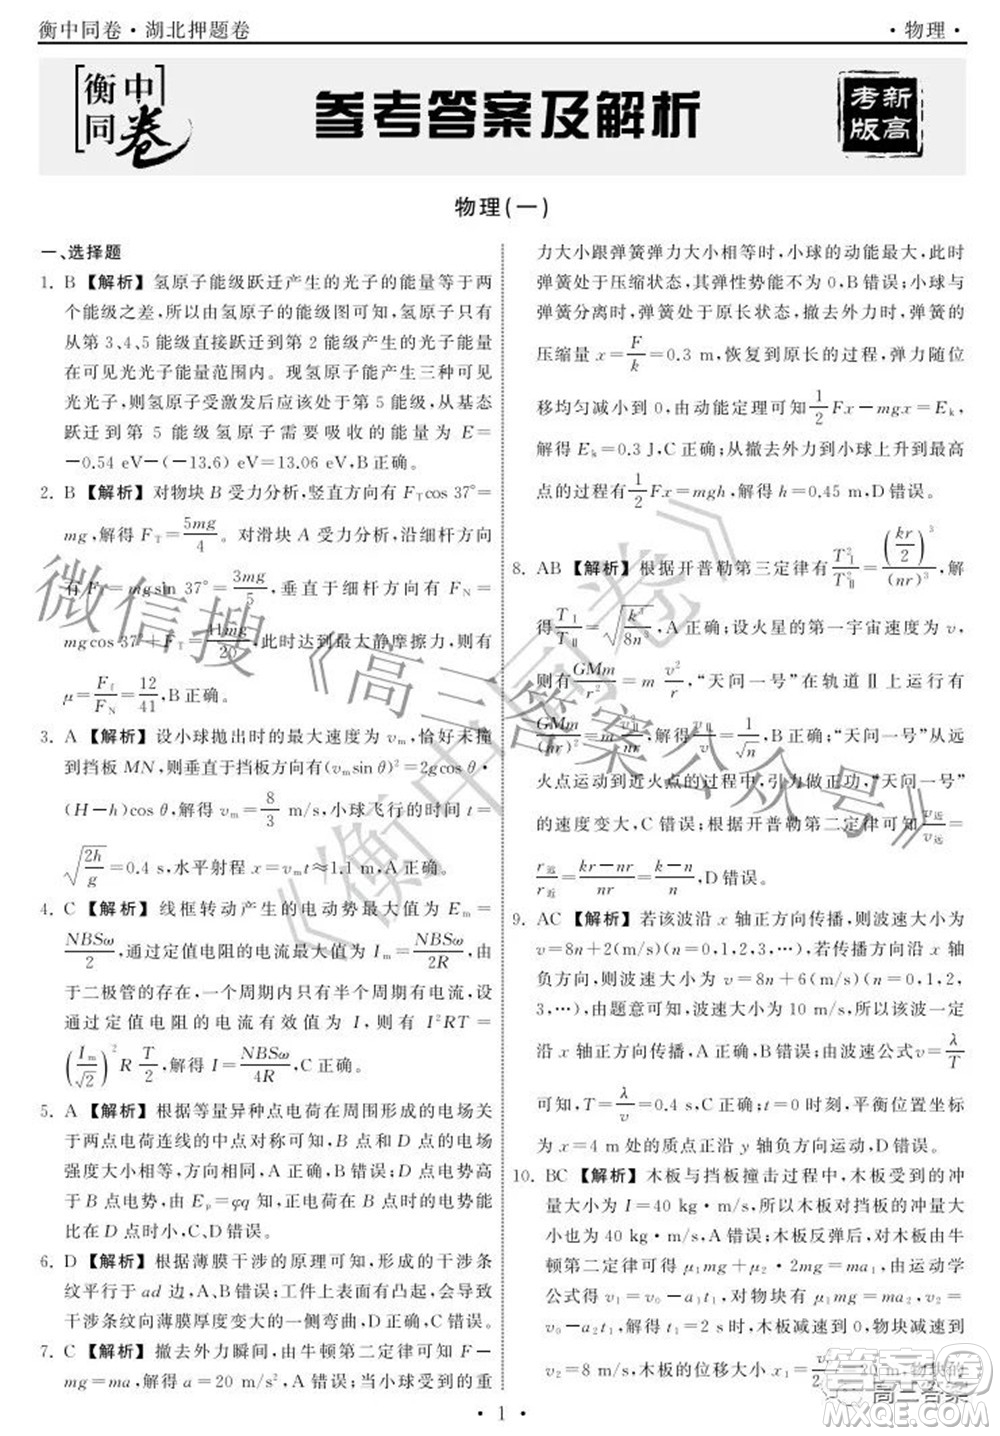 衡中同卷·湖北押题卷
·物理·
衡中
同卷
参考答案及解析
新高
考版
物理(一)
一、选择题
1. B 【解析】氢原子能级跃迁产生的光子的能量等于两
个能级之差,所以由氢原子的能级图可知,氢原子只有
从第3、4、5能级直接跃迁到第2能级产生的光子能量
在可见光光子能量范围内。现氢原子能产生三种可见
光光子,则氢原子受激发后应该处于第5能级,从基态
跃迁到第5能级氢原子需要吸收的能量E=
-0.54 eV-(-13.6) eV=13.06 eV,B正确。
2. B 【解析】对物块B受力分析,竖直方向有F_T cos 37°=
mg,解得F_T=5mg/4。对滑块A受力分析,沿细杆方向
有F_f=mg sin 37°=3mg/5,垂直于细杆方向有F_N=
mg cos 37°+F_T=41mg/20,此时达到最大静摩擦力,则有
μ=F_f/F_N=12/41,B正确。
3. A 【解析】设小球抛出时的最大速度为v_m,恰好未撞
到挡板MN,则垂直于挡板方向有(v_m sin θ)²=2g cos θ·
(H-h)cos θ,解得v_m=8/3 m/s,小球飞行的时间t=
√(2h/g)=0.4 s,水平射程x=v_m t≈1.1 m,A正确。
4. C 【解析】线框转动产生的电动势最大值为E_m=
NBSω/2,通过定值电阻的电流最大值为I_m=NBSω/2R,由
于二极管的存在,一个周期内只有半个周期有电流,设
通过定值电阻的电流有效值为I,则有I²RT=
(I_m/√2)²R T/2,解得I=NBSω/4R,C正确。
5. A 【解析】根据等量异种点电荷在周围形成的电场关
于两点电荷连线的中点对称可知,B点与D点的电场
强度大小相等,方向相同,A正确,B错误;C点电势高
于B点电势,由E_p=φq知,正电荷在B点的电势能
比在D点时小,C、D错误。
6. D 【解析】根据薄膜干涉的原理可知,干涉条
纹平行于ad边,A、B错误;工件上有凸起时,
干涉条纹向薄膜厚度大的一侧弯曲,D正确。
7. C 【解析】撤去外力瞬间,由牛顿第二定律可知F-
mg=ma,解得a=20 m/s²,A错误;当小球的重
力大小跟弹簧弹力大小相等时,小球的动能最大,此时
弹簧处于压缩状态,其弹性势能不为0,B错误;小球与
弹簧分离时,弹簧处于原长状态,撤去外力时,弹簧的
压缩量x=F/k=0.3 m,恢复到原长过程,弹力随位
移均匀减小到0,由动能定理可知1/2Fx-mgx=E_k,
解得E_k=0.3 J,C正确;从撤去外力到小球上升到最高
点的过程有1/2Fx=mgh,解得h=0.45 m,D错误。
8. AB 【解析】根据开普勒第三定律有T²_Ⅰ/T²_Ⅱ=(kr/2)³/(nr)³,解
得T_Ⅰ/T_Ⅱ=√(k³/8n³),A正确;设火星的第一宇宙速度为v,
则有GMm/r²=m v²/r,“天问一号”在轨道Ⅱ上运行有
GMm/(nr)²=m v²_Ⅱ/nr,可得v_Ⅱ=v/√n,B正确;“天问一号”从远
火点运动到近火点的过程中,引力做正功,“天问一号”
的速度变大,C错误;根据开普勒第二定律可知v_近/v_远=
r_远/r_近=(kr-nr)/nr=(k-n)/n,D错误。
9. AC 【解析】若该波沿x轴正方向传播,则波速大小为
v=8n+2(m/s)(n=0,1,2,3,…),若传播方向沿x轴
负方向,则波速大小为v=8n+6(m/s)(n=0,1,2,
3,…),由题意可知,波速大小为10 m/s,所以该波一定
沿x轴正方向传播,A正确,B错误;由波速公式v=λ/T
可知,T=λ/v=0.8 s,C正确;t=0时刻,平衡位置在
x=4 m处的质点正沿y轴负方向运动,D错误。
10. BC 【解析】木板与挡板撞击过程中,木板受到的冲
量大小为I=40 kg·m/s,所以木板对挡板的冲量大
小为40 kg·m/s,A错误;木板反弹后,对木板由牛
顿第二定律可得μ₁mg+μ₂·2mg=ma₁,由运动学
公式得v₁=v₀-a₁t₁,对物块有μ₁mg=ma₂,v₂=
v₀-a₂t₁,解得t₁=2 s时,木板减速到0,物块减速到
v₂=8 m/s,木板的位移大小x₁=v₁/2 t₁=20 m,物块的
· 1 ·
微信搜《高三答案公众号》
《衡中同卷》
高三答案
答案圈
MXQE.COM